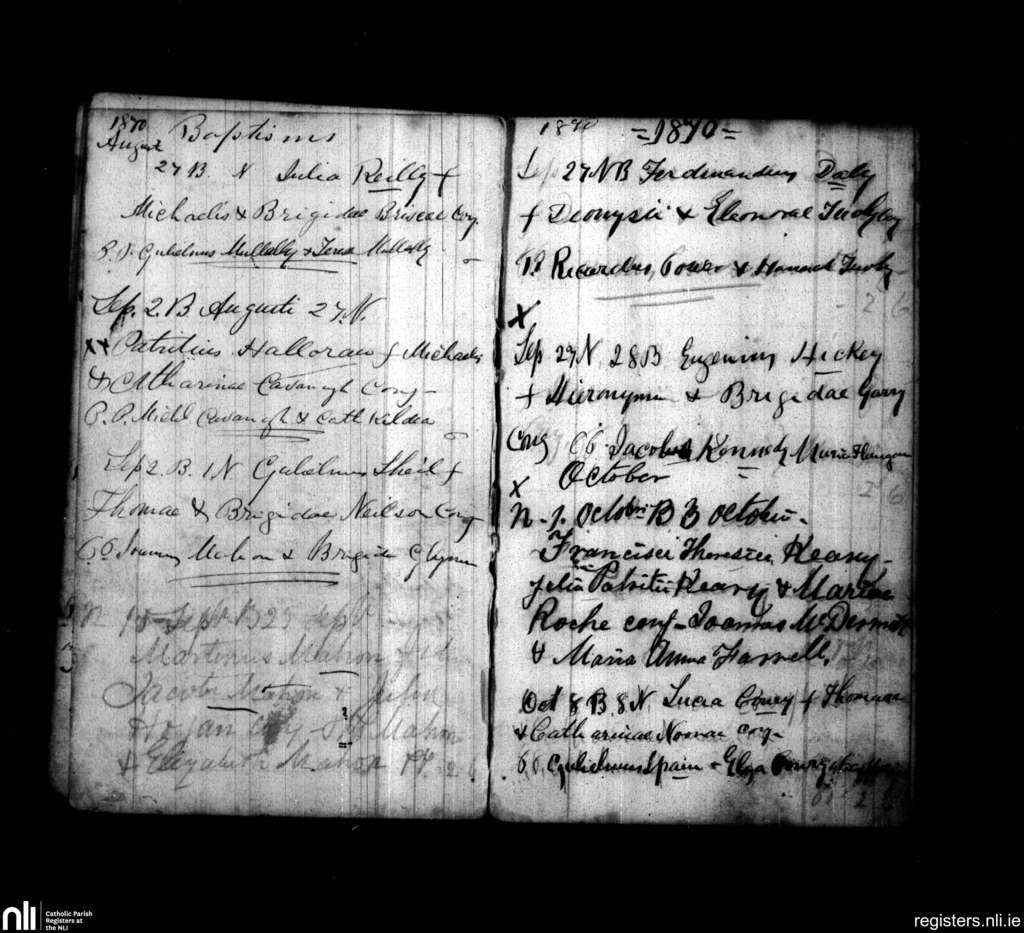 1870 Baptisms
August
27 B. N Julia Reilly f
Michaelis & Brigidae Briscoe Conj.
P.P. Gulielmus Mullally & Teresa Mullally
Sep. 2. B Augusti 27 N.
xx Patritius Halloran f Michaelis
& Catharinae Cavanagh Conj
P.P. Michl Cavanagh & Cath Kildea
Sep 2 B. 1 N Gulielmus Sheil f
Thomae & Brigidae Neilson Conj
Mahon & Brigida Glynn
N 15 Sept B 25 Sept
Martinus Mahon
Jacobi Mahon & Julia
Hogan Conj Mahon
& Elizabeth Mahon
1870 =1870=
Sep 27 N B Ferdinandus Daly
f Dionysii & Eleonorae
PP Ricardus Power & Hannah
2 6
x
Sep 27 N. 28 B Eugenius Hickey
f Hieronymi & Brigidae Garry
Conj Jacobus Kennedy Maria
2 6
October
x
N. 1. Octobris B 3 Octobris
Francisci Keary
Patritii Keary & Martha
Roche conj Joannas McDermott
& Maria Anna Farrell
Oct 8 B. 8 N. Lucia f Thomae
& Catharinae Noonan Conj
Gulielmus Spain & Eliza
2 6
nli
Catholic Parish
Registers at
the NLI
registers.nli.ie